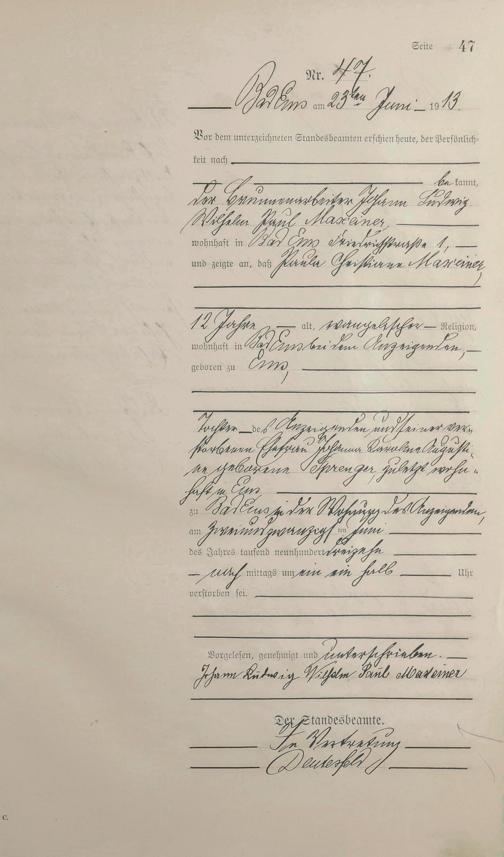 Seite 47
Nr. 47.
Bad Ems am 23ten Juni 1913.
Vor dem unterzeichneten Standesbeamten erschien heute, der Persönlich-
keit nach
bekannt,
der Brunnenarbeiter Johann Ludwig
Wilhelm Paul Maxeiner,
wohnhaft in Bad Ems Friedrichstraße 1,
und zeigte an, daß Paula Christiane Maxeiner,
12 Jahre alt, evangelischer Religion,
wohnhaft in Bad Ems bei dem Anzeigenden,
geboren zu Ems,
Tochter des Anzeigenden und seiner ver-
storbenen Ehefrau Johanna Karoline Augusti-
ne geborene Sprenger, zuletzt wohn-
haft in Ems
zu Bad Ems in der Wohnung des Anzeigenden,
am zweiundzwanzigsten Juni
des Jahres tausend neunhundert dreizehn
nachmittags um ein ein halb Uhr
verstorben sei.
Vorgelesen, genehmigt und unterschrieben.
Johann Ludwig Wilhelm Paul Maxeiner
Der Standesbeamte.
In Vertretung